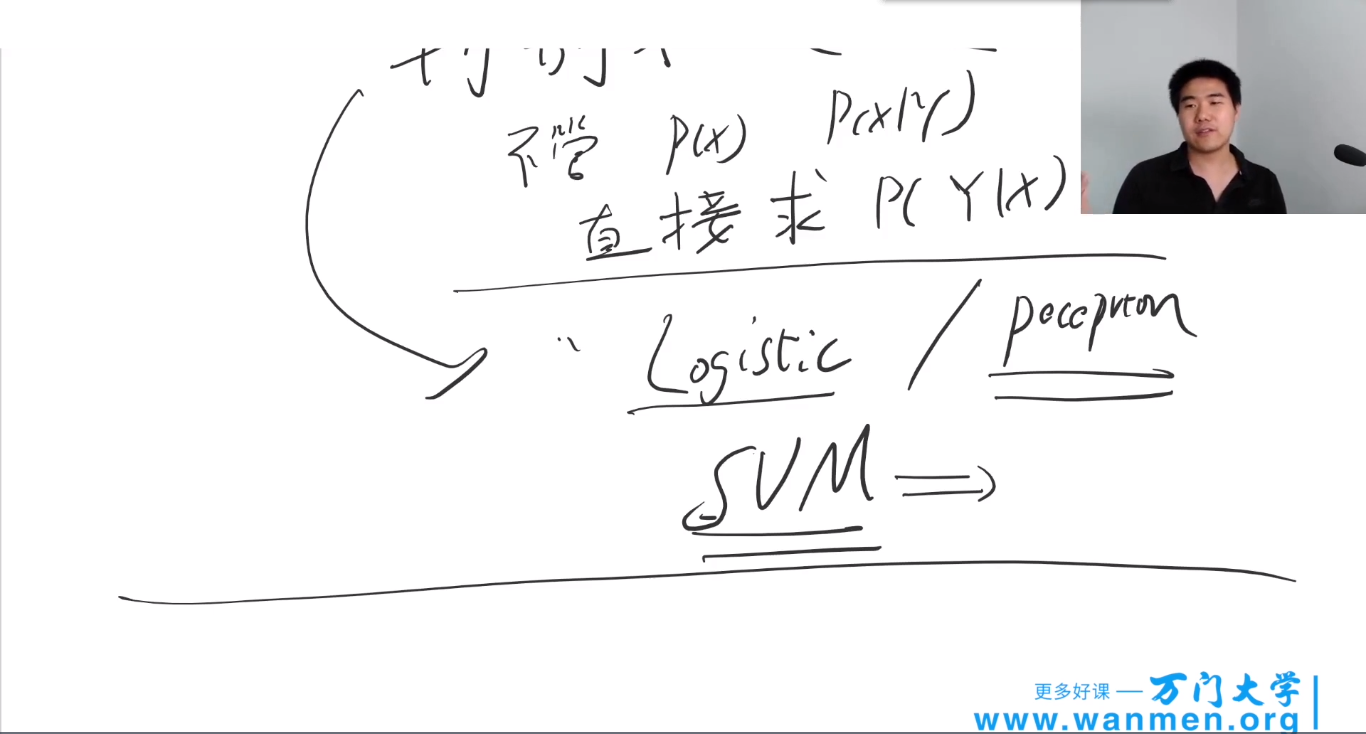 不管 P(X) P(X|Y)
直接求 P(Y|X)
Logistic / peceptron
SVM ⇒
更多好课 — 万门大学
www.wanmen.org